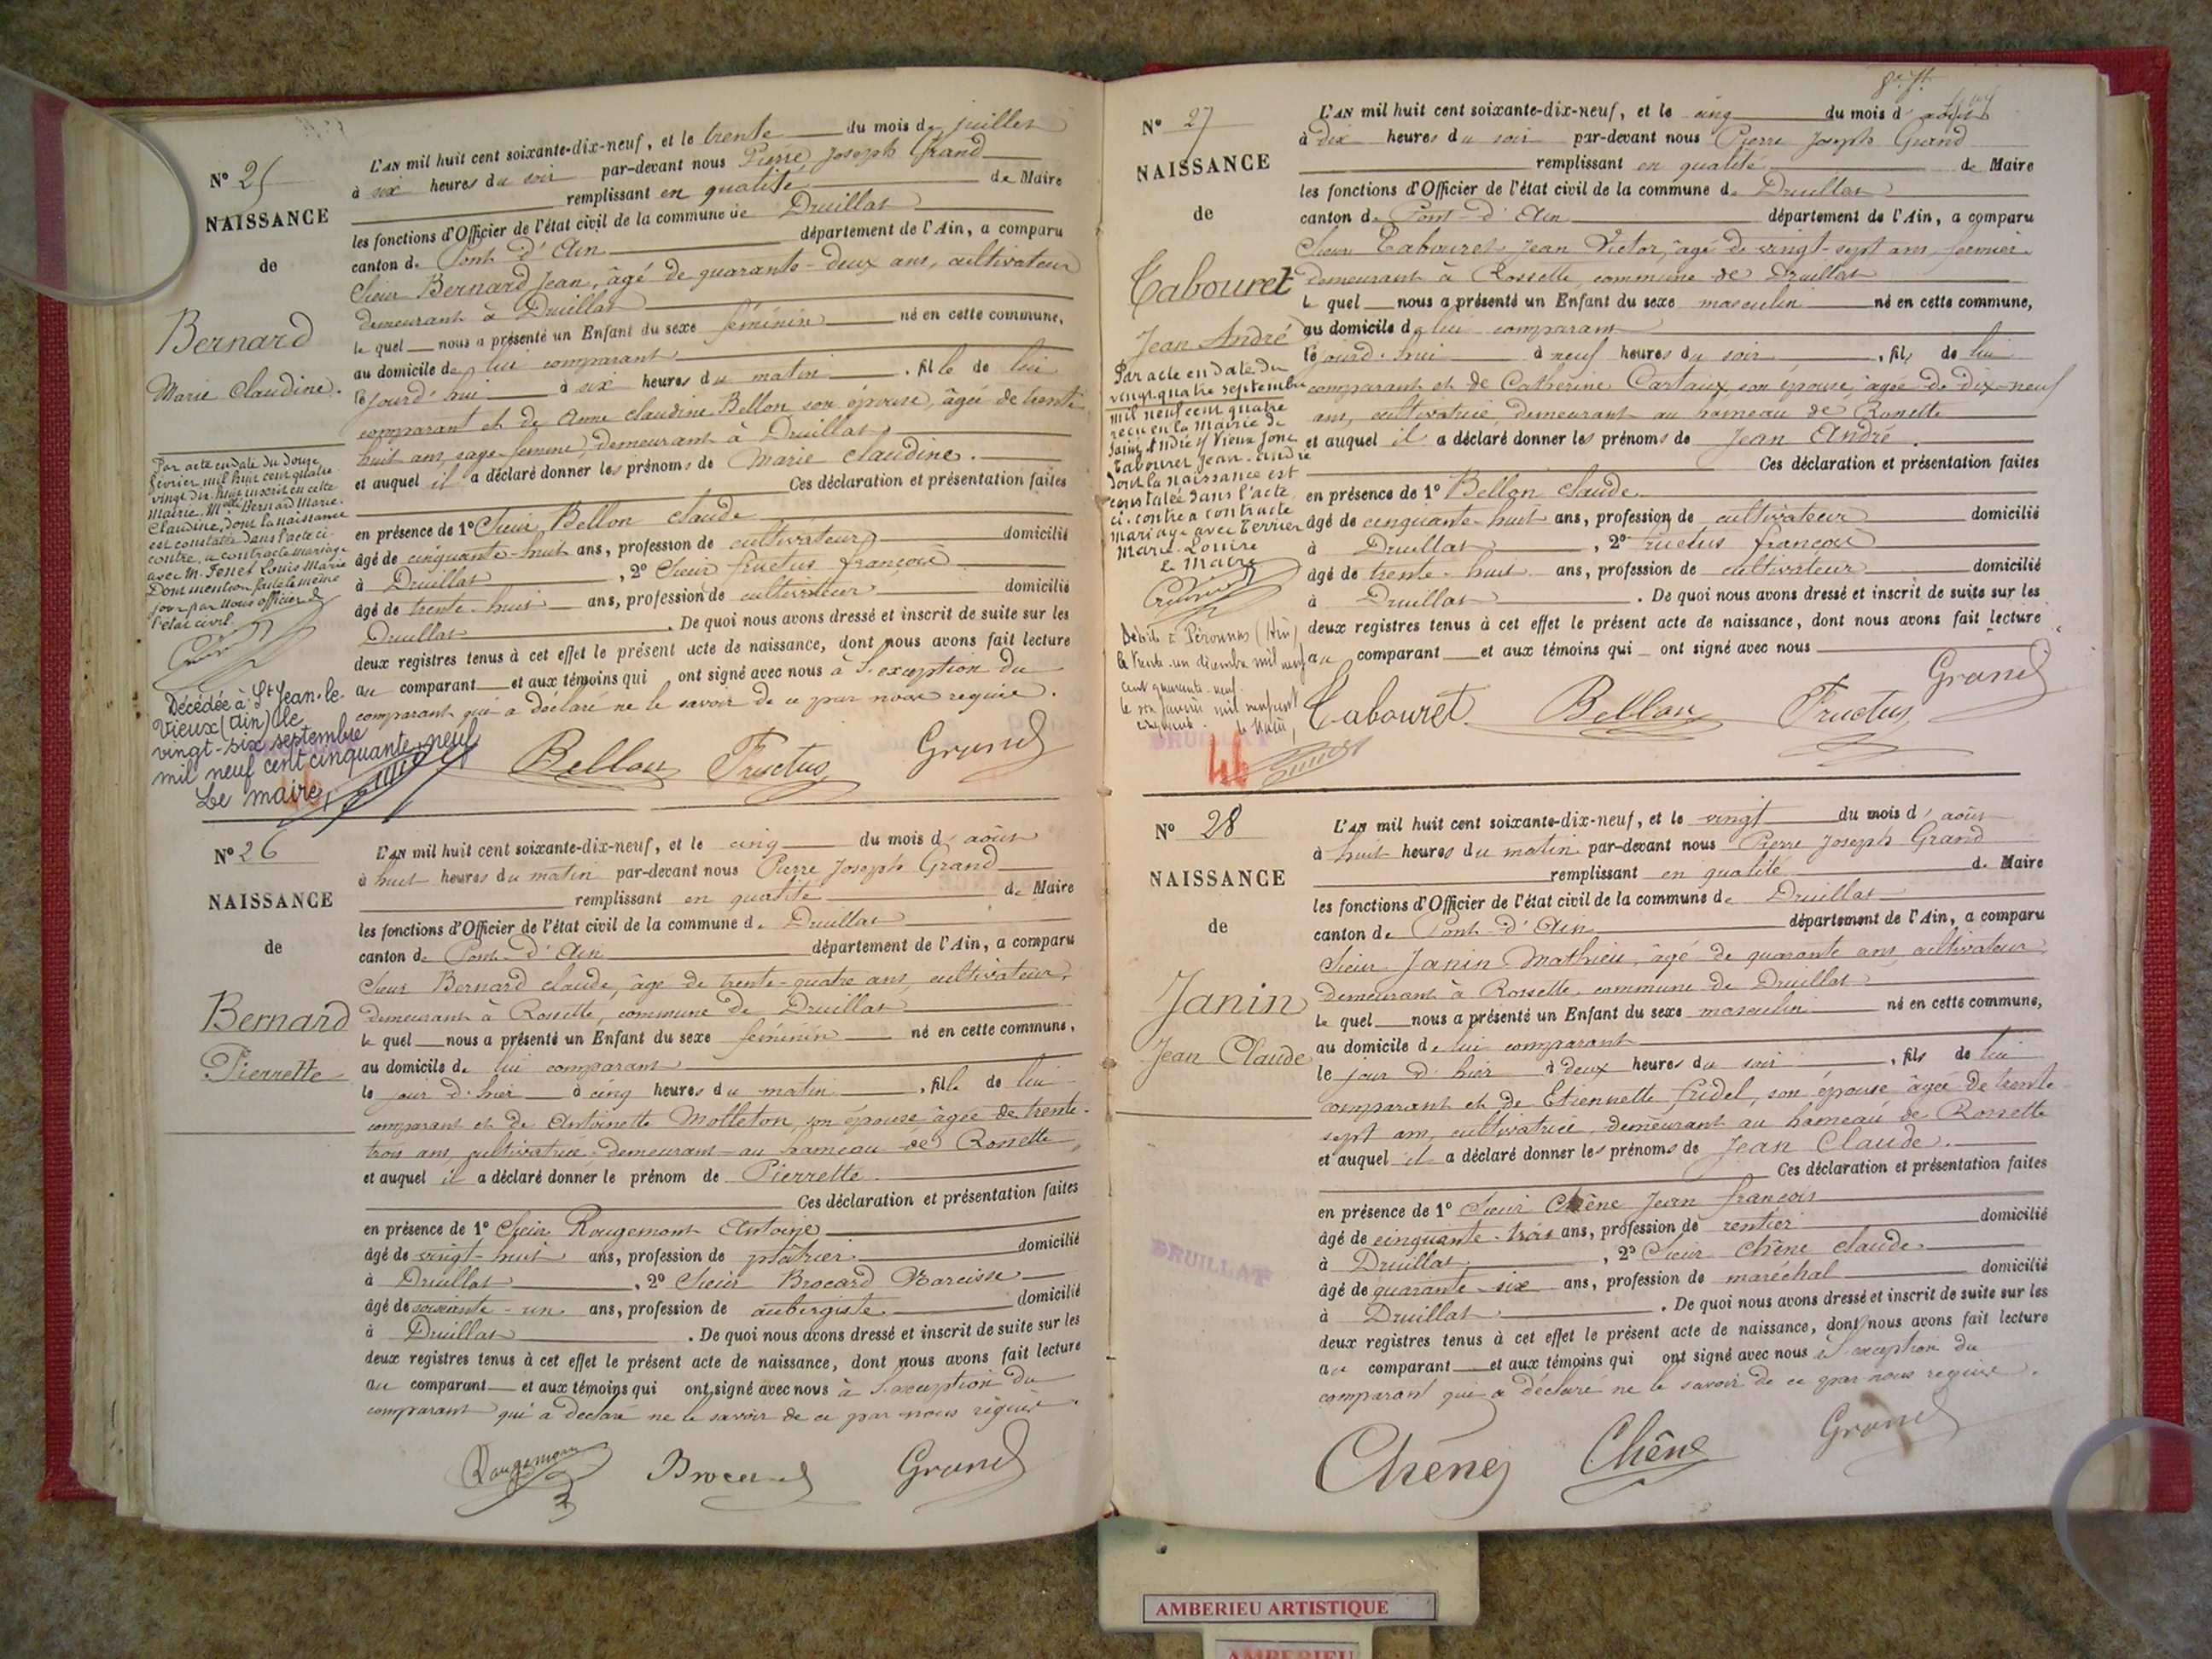 N° 25
NAISSANCE
de
Bernard
Marie Claudine.
Par acte en date du douze
février mil huit cent quatre
vingt dix huit inscrit en cette
mairie, Melle Bernard Marie
Claudine, dont la naissance
est constatée dans l'acte ci-
contre, a contracté mariage
avec M. Fenet Louis Marie
Dont mention faite le même
jour par nous officier de
l'état civil.
Décédée à St Jean-le-
Vieux (Ain) le
vingt-six septembre
mil neuf cent cinquante-neuf
Le maire,
L'AN mil huit cent soixante-dix-neuf, et le trente du mois de juillet
à six heures du soir par-devant nous Pierre Joseph Grand
remplissant en qualité de Maire
les fonctions d'Officier de l'état civil de la commune de Druillat
canton de Pont d'Ain département de l'Ain, a comparu
Sieur Bernard Jean, âgé de quarante-deux ans, cultivateur
demeurant à Druillat
le quel nous a présenté un Enfant du sexe féminin né en cette commune,
au domicile de lui comparant
le jourd'hui à six heures du matin, fille de lui
comparant et de Anne Claudine Bellon son épouse, âgée de trente
huit ans, sage-femme, demeurant à Druillat
et auquel il a déclaré donner les prénoms de Marie Claudine.
Ces déclaration et présentation faites
en présence de 1° Sieur Bellon Claude
âgé de cinquante-huit ans, profession de cultivateur domicilié
à Druillat, 2° Sieur Fructus françois
âgé de trente-huit ans, profession de cultivateur domicilié
Druillat. De quoi nous avons dressé et inscrit de suite sur les
deux registres tenus à cet effet le présent acte de naissance, dont nous avons fait lecture
au comparant et aux témoins qui ont signé avec nous à l'exception du
comparant qui a déclaré ne le savoir de ce par nous requis.
Bellon Fructus Grand
N° 26
NAISSANCE
de
Bernard
Pierrette
L'AN mil huit cent soixante-dix-neuf, et le cinq du mois d'août
à huit heures du matin par-devant nous Pierre Joseph Grand
remplissant en qualité de Maire
les fonctions d'Officier de l'état civil de la commune de Druillat
canton de Pont-d'Ain département de l'Ain, a comparu
Sieur Bernard Claude, âgé de trente-quatre ans, cultivateur,
demeurant à Rossette, commune de Druillat
le quel nous a présenté un Enfant du sexe féminin né en cette commune,
au domicile de lui comparant
le jour d'hier à cinq heures du matin, fille de lui
comparant et de Antoinette Molleton, son épouse âgée de trente-
trois ans, cultivatrice, demeurant au hameau de Rossette,
et auquel il a déclaré donner le prénom de Pierrette
Ces déclaration et présentation faites
en présence de 1° Sieur Rougemont Antoine
âgé de vingt-huit ans, profession de plâtrier domicilié
à Druillat, 2° Sieur Brocard Narcisse
âgé de soixante-un ans, profession de aubergiste domicilié
à Druillat. De quoi nous avons dressé et inscrit de suite sur les
deux registres tenus à cet effet le présent acte de naissance, dont nous avons fait lecture
au comparant et aux témoins qui ont signé avec nous à l'exception du
comparant qui a déclaré ne le savoir de ce par nous requis.
Rougemont Brocard Grand
N° 27
NAISSANCE
de
Tabouret
Jean André
Par acte en date du
vingt-quatre septembre
mil neuf cent quatre
reçu en la mairie de
Saint André s/ Vieux Jonc
Tabouret Jean-André
dont la naissance est
constatée dans l'acte
ci-contre a contracté
mariage avec Terrier
Marie-Louise
Le Maire
Décédé à Péronnas (Ain)
le trente-un décembre mil neuf
cent quarante-neuf.
le Maire,
DRUILLAT
L'AN mil huit cent soixante-dix-neuf, et le cinq du mois d'août
à dix heures du soir par-devant nous Pierre Joseph Grand
remplissant en qualité de Maire
les fonctions d'Officier de l'état civil de la commune de Druillat
canton de Pont-d'Ain département de l'Ain, a comparu
Sieur Tabouret Jean Victor, âgé de vingt-sept ans, fermier
demeurant à Rossette, commune de Druillat
le quel nous a présenté un Enfant du sexe masculin né en cette commune,
au domicile de lui comparant
le jourd'hui à neuf heures du soir, fils de lui
comparant et de Catherine Cartaux, son épouse, âgée de dix-neuf
ans, cultivatrice demeurant au hameau de Rossette
et auquel il a déclaré donner les prénoms de Jean André.
Ces déclaration et présentation faites
en présence de 1° Bellon Claude
âgé de cinquante-huit ans, profession de cultivateur domicilié
à Druillat, 2° Fructus françois
âgé de trente-huit ans, profession de cultivateur domicilié
à Druillat. De quoi nous avons dressé et inscrit de suite sur les
deux registres tenus à cet effet le présent acte de naissance, dont nous avons fait lecture
au comparant et aux témoins qui ont signé avec nous
Tabouret Bellon Fructus Grand
N° 28
NAISSANCE
de
Janin
Jean Claude
DRUILLAT
L'AN mil huit cent soixante-dix-neuf, et le vingt du mois d'août
à huit heures du matin par-devant nous Pierre Joseph Grand
remplissant en qualité de Maire
les fonctions d'Officier de l'état civil de la commune de Druillat
canton de Pont-d'Ain département de l'Ain, a comparu
Sieur Janin Mathieu, âgé de quarante ans, cultivateur
demeurant à Rossette, commune de Druillat
le quel nous a présenté un Enfant du sexe masculin né en cette commune,
au domicile de lui comparant
le jour d'hier à deux heures du soir, fils de lui
comparant et de Etiennette Fridel, son épouse âgée de trente
sept ans, cultivatrice, demeurant au hameau de Rossette
et auquel il a déclaré donner les prénoms de Jean Claude.
Ces déclaration et présentation faites
en présence de 1° Sieur Chêne Jean françois
âgé de cinquante-trois ans, profession de rentier domicilié
à Druillat, 2° Sieur Chêne Claude
âgé de quarante-six ans, profession de maréchal domicilié
à Druillat. De quoi nous avons dressé et inscrit de suite sur les
deux registres tenus à cet effet le présent acte de naissance, dont nous avons fait lecture
au comparant et aux témoins qui ont signé avec nous à l'exception du
comparant qui a déclaré ne le savoir de ce par nous requis.
Chêne Chêne Grand
AMBERIEU ARTISTIQUE
AMBERIEU